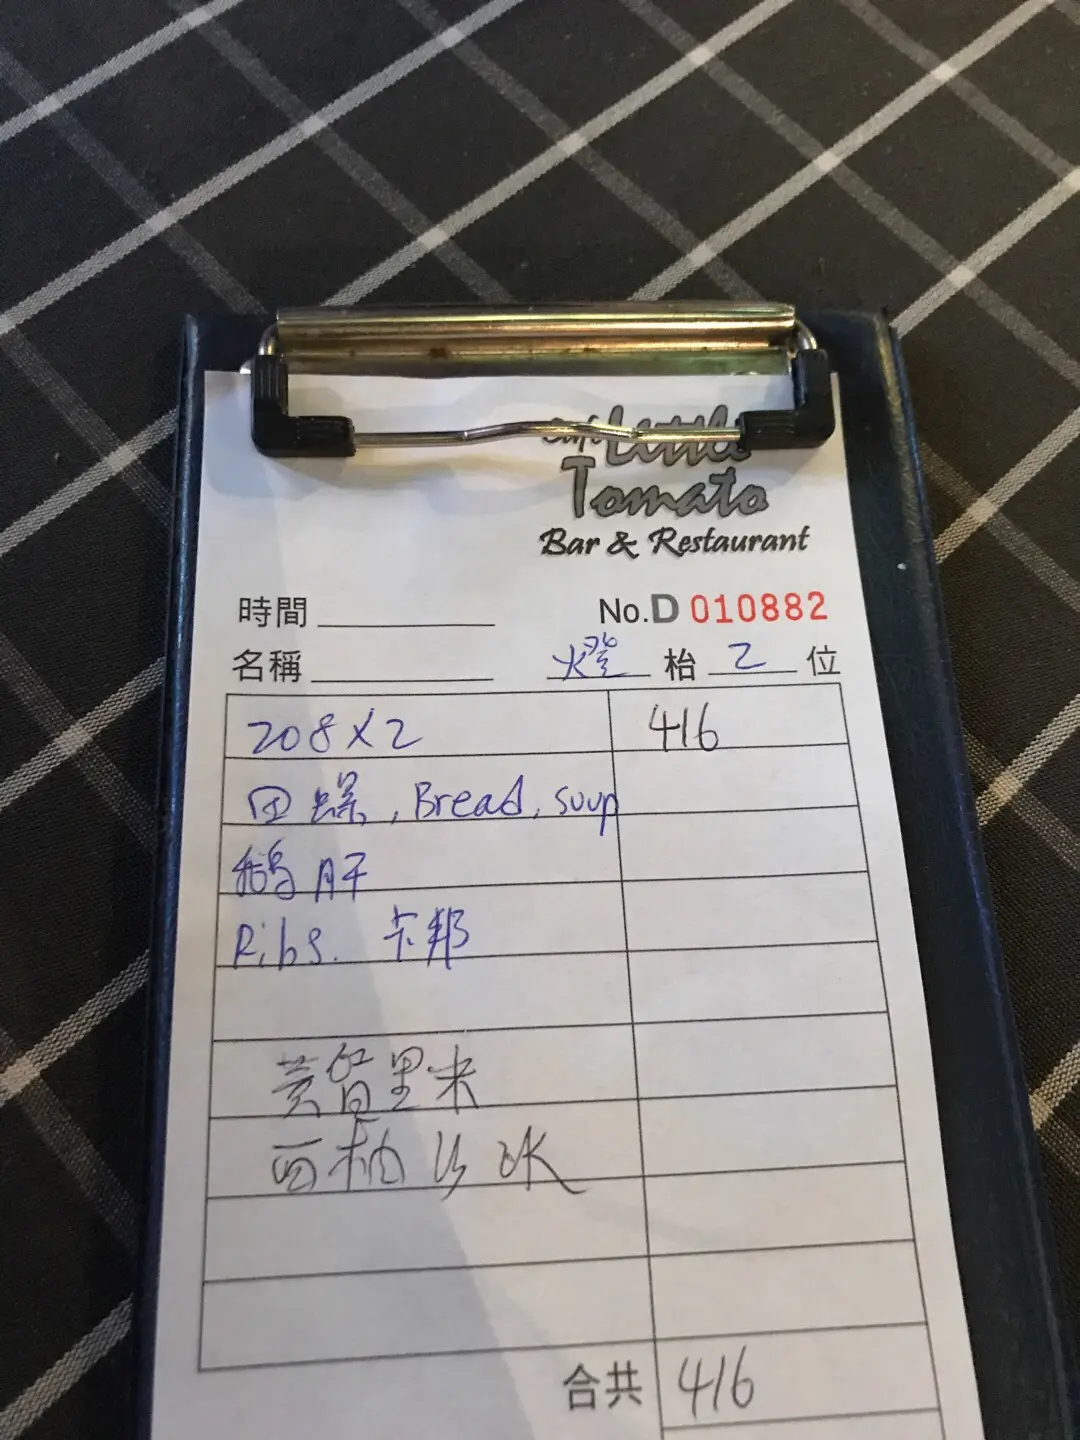 Café Little
Tomato
Bar & Restaurant
時間
No.D 010882
名稱 枱 2 位
208×2 416
田螺, Bread, soup
鵝肝
Ribs. 卡邦
黃 里米
西柚沙冰
合共 416